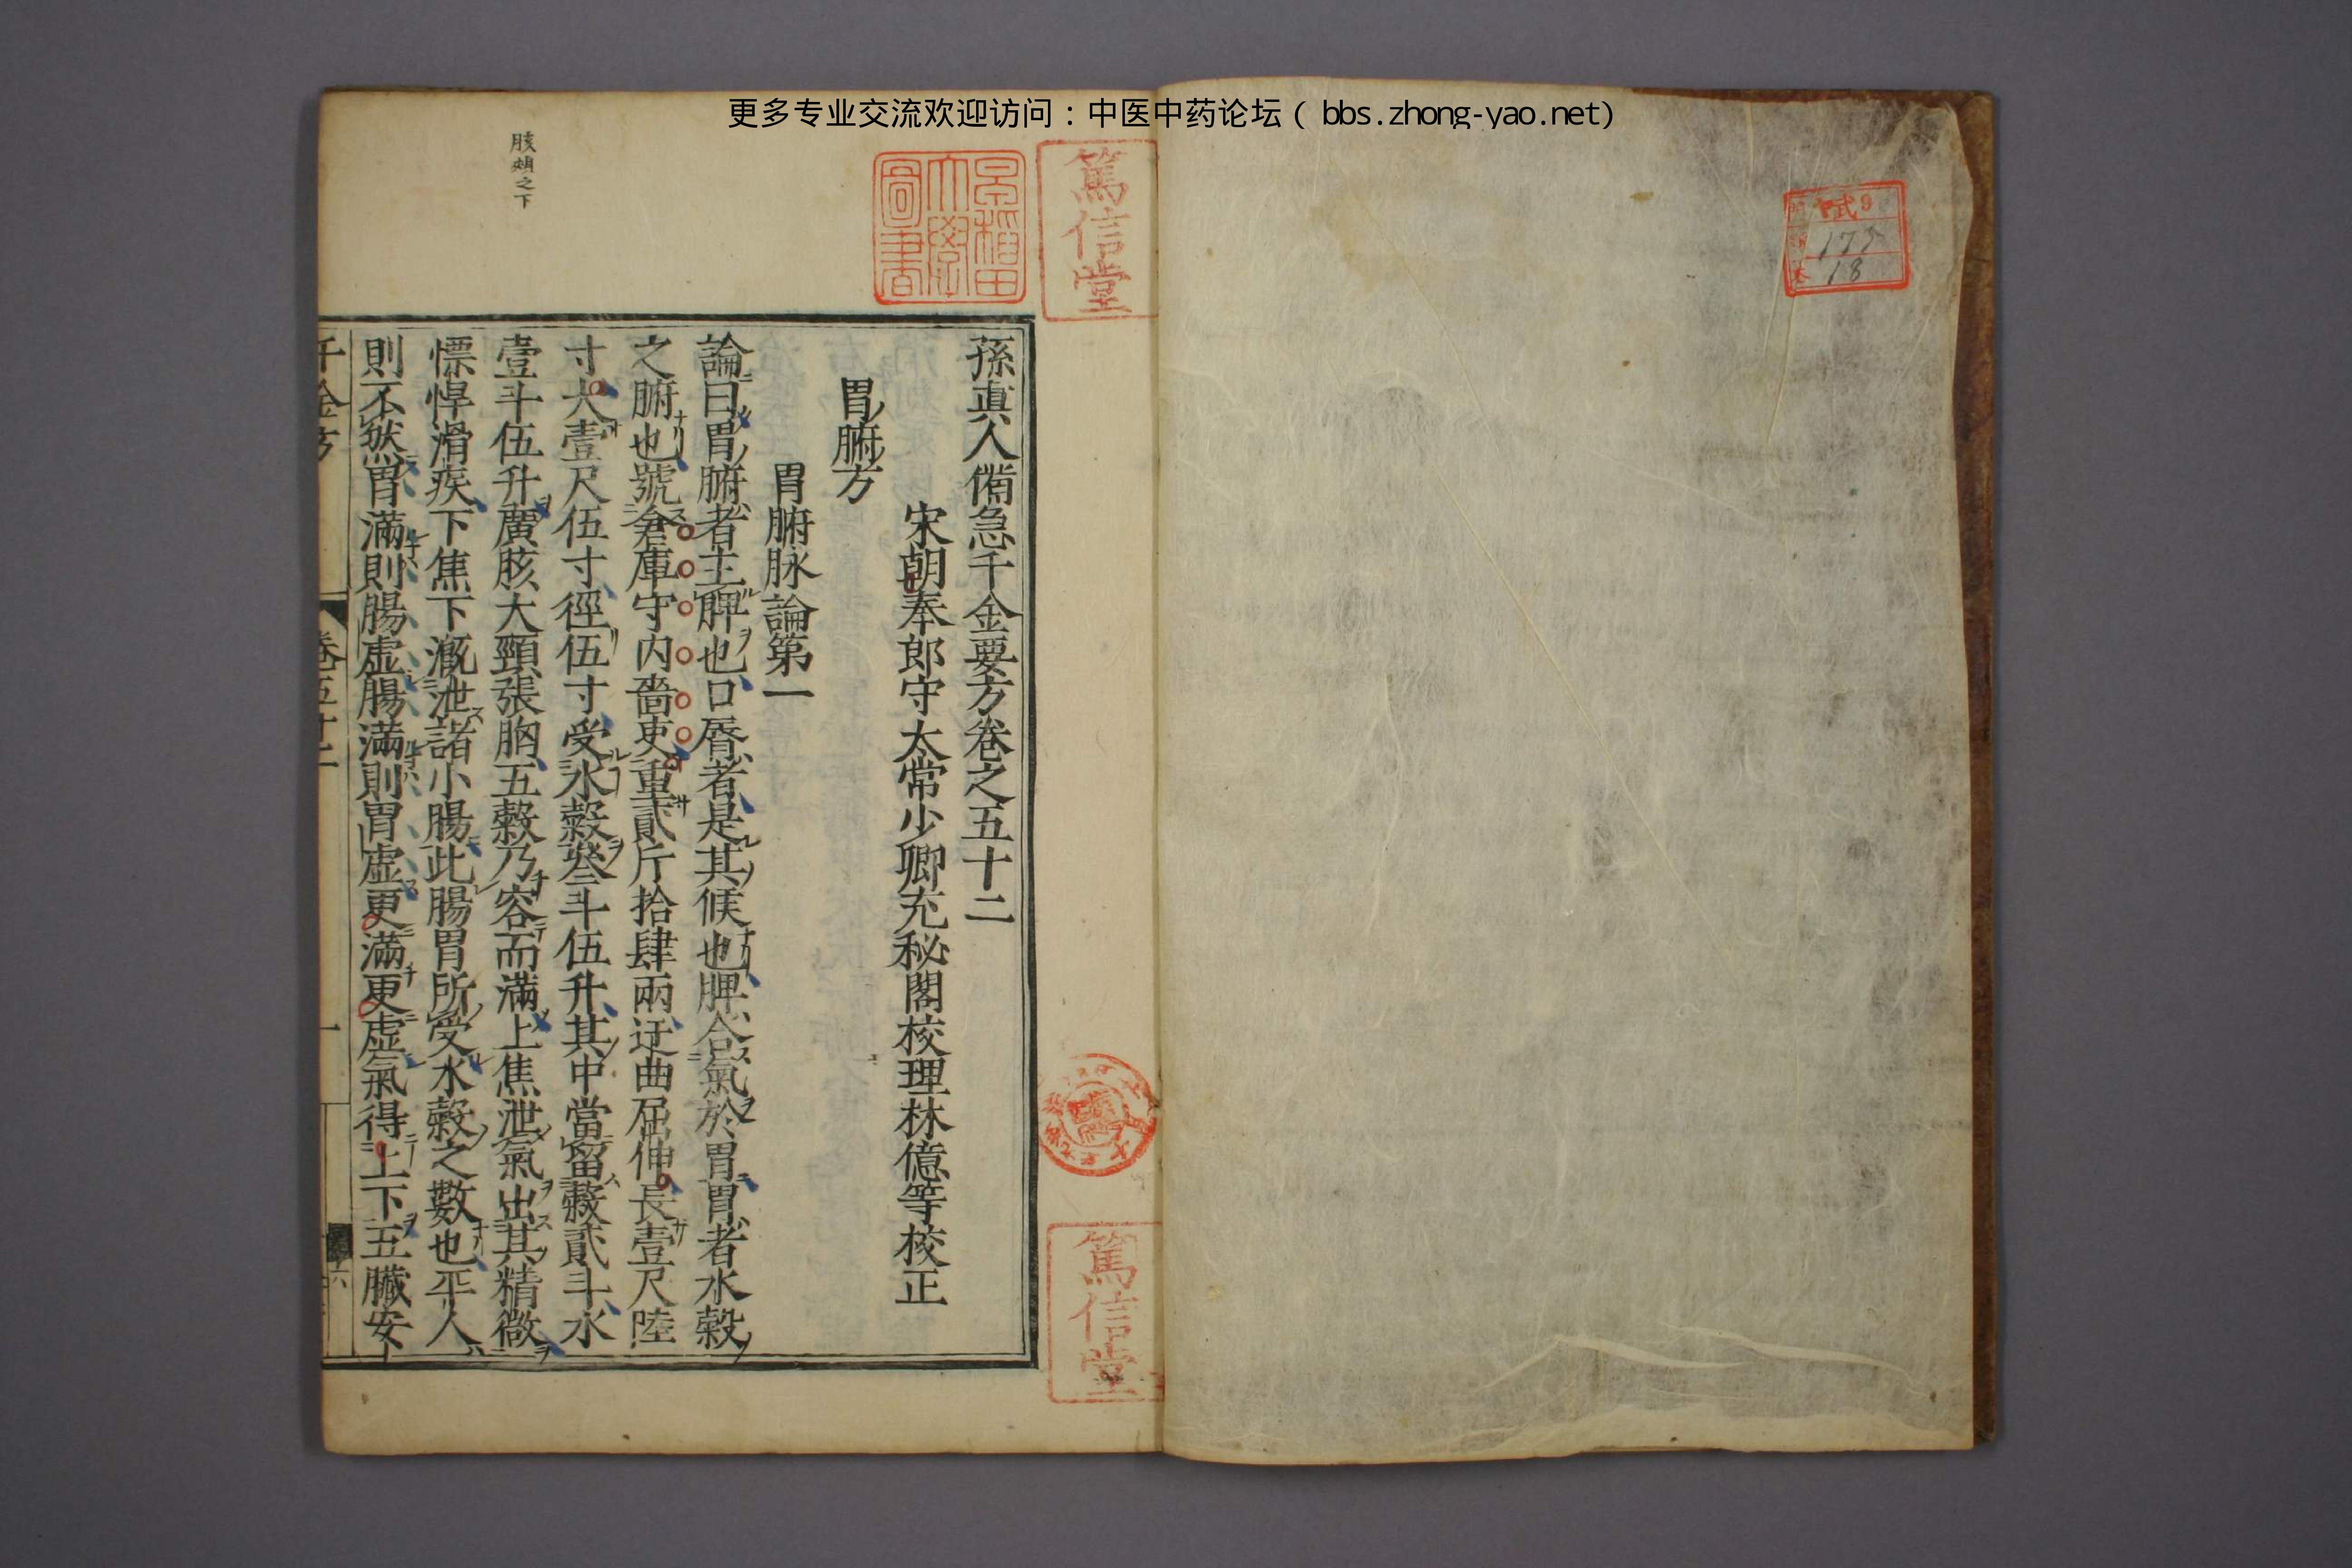 更多专业交流欢迎访问：中医中药论坛（ bbs.zhong-yao.net)
弎9
175
18
篤信堂
早稻田
大學
圖書
篤信堂
胲頰之下
孫真人備急千金要方卷之五十二
宋朝奉郎守太常少卿充秘閣校理林億等校正
胃腑方
胃腑脉論第一
論曰胃腑者主脾也口脣者是其候也脾合氣於胃胃者水穀
之腑也號倉庫守內嗇吏重貳斤拾肆兩迂曲屈伸長壹尺陸
寸大壹尺伍寸徑伍寸受水穀叄斗伍升其中當留穀貳斗水
壹斗伍升廣胲大頸張胸五穀乃容而滿上焦泄氣出其精微
慓悍滑疾下焦下溉泄諸小腸此腸胃所受水穀之數也平人
則不然胃滿則腸虛腸滿則胃虛更滿更虛氣得上下五臟安
千金方 卷五十二 一